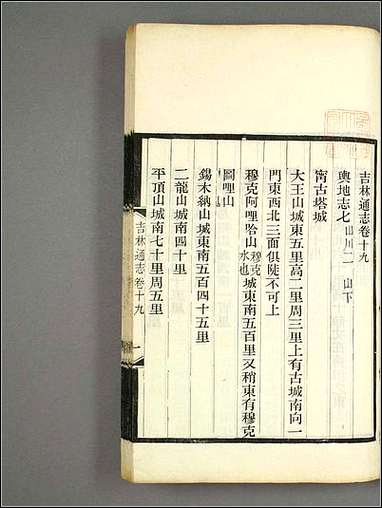 吉林通志卷十九
輿地志七 山川二 山下
甯古塔城
大王山城東五里高二里周三里上有古城南向一
門東西北三面俱陡不可上
穆克阿哩哈山 穆克水也 城東南五百里又稍東有穆克
圖哩山
錫木納山城東南五百四十五里
二龍山城南四十里
平頂山城南七十里周五里
吉林通志卷十九
一